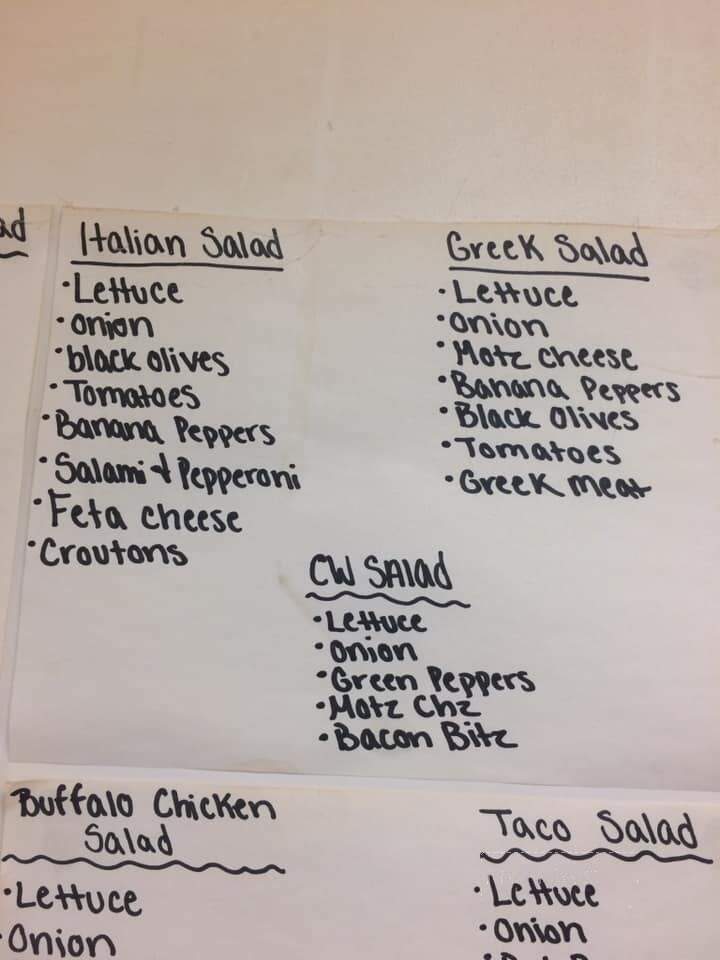 ad
Italian Salad
•Lettuce
•onion
•black olives
•Tomatoes
•Banana Peppers
•Salami & Pepperoni
•Feta cheese
•Croutons
Greek Salad
•Lettuce
•Onion
•Motz cheese
•Banana Peppers
•Black Olives
•Tomatoes
•Greek meat
CW SAlad
•Lettuce
•Onion
•Green Peppers
•Motz Chz
•Bacon Bitz
Buffalo Chicken
Salad
•Lettuce
•Onion
Taco Salad
•Lettuce
•Onion